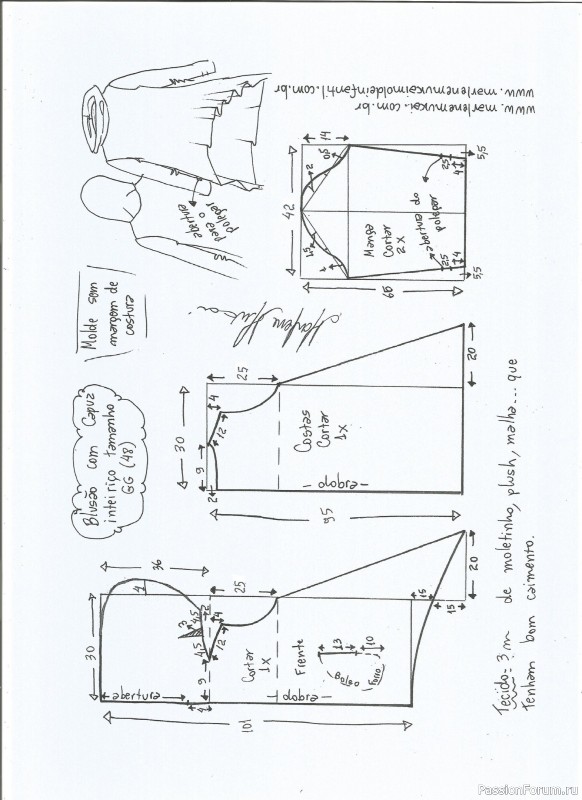 Blusão com Capuz
inteiriço tamanho
GG (48)
Molde sem
margem de
costura
abertura
para o
polegar
www.marlenemukai.com.br
www.marlenemukaimoldeinfantil.com.br
42
14
Manga
Cortar
2X
abertura do
polegar
2
25
4
5,5
25
4
5,5
Marlene Mukai
25
4
12
30
9
2
Costas
Cortar
1X
dobra
95
20
36
4
25
30
3
4,5
4,5
2
4
12
9
4
abertura
Cortar
1X
Frente
dobra
13
10
bolso
Forro
15
15
20
101
Tecido = 3 m de moletinho, plush, malha... que
tenham bom caimento.
PassionForum.ru